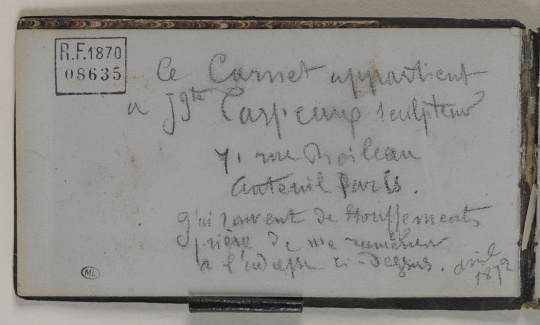 R.F.1870
08635
Ce Carnet appartient
a Jgte Carpeaux sculpteur
71 rue Boileau
Auteuil Paris.
J'ai souvent de étouffements
prière de me ramener
a l'adresse ci-dessus.
avril
1872
ML